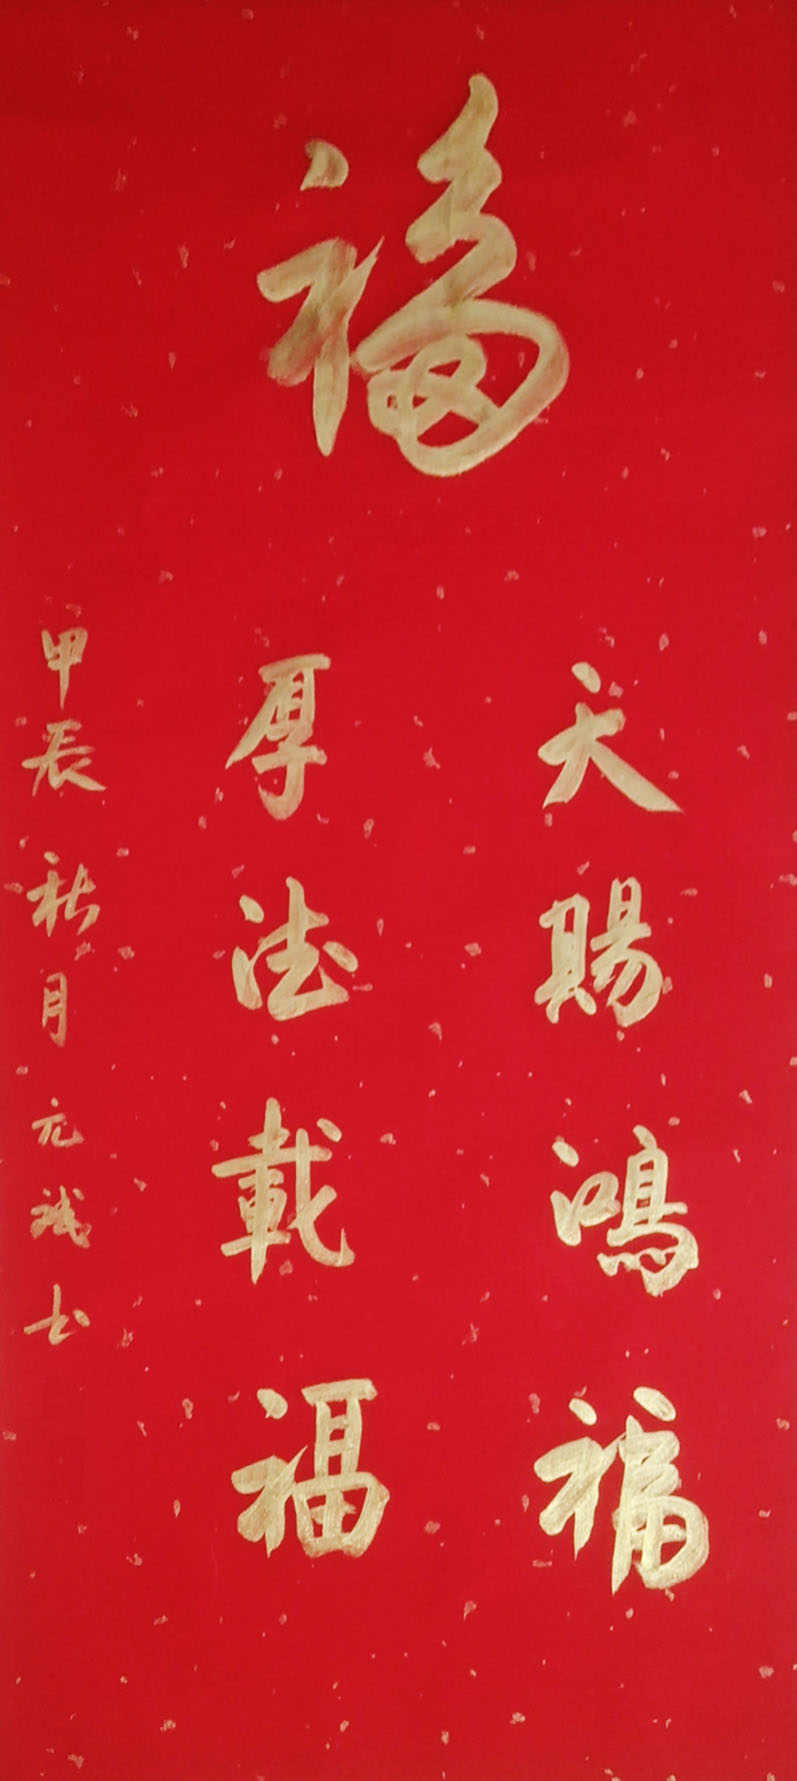 福
天賜鴻福
厚德載福
甲辰秋月元斌书